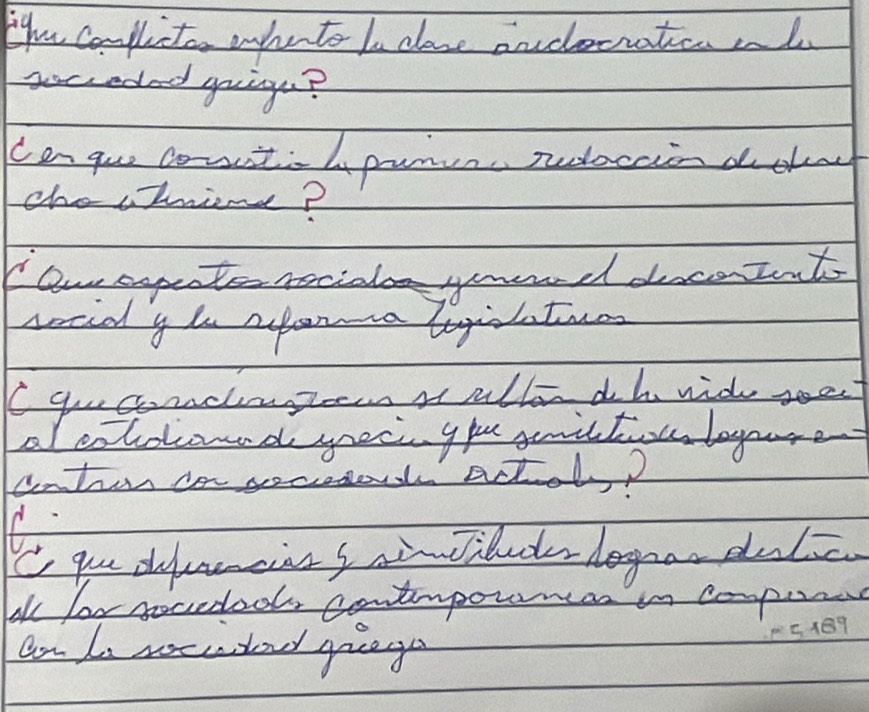 ¿que conflictos enfrento la clase aridocratica en la
sociedad griega?
¿en que consistio la primera redacción de dere
cho ateniense?
¿Que aspectos sociales genero el descontento
social y la reforma legislativas
¿que caracteristicas se resaltan de la vida soci
al cotidiana de grecia y que similitudes logras en
contrar con sociedades actuales?
¿
¿que diferencias y similitudes logras destacar
de las sociedades contemporaneas en comparac
con la sociedad griega
5189